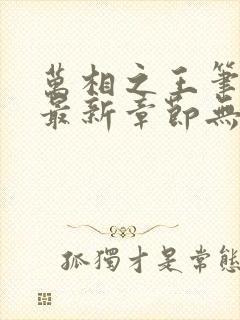 萬相之王筆
最新章節無
孤獨才是常態